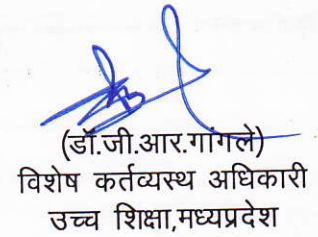 (डॉ.जी.आर.गांगले)
विशेष कर्तव्यस्थ अधिकारी
उच्च शिक्षा,मध्यप्रदेश